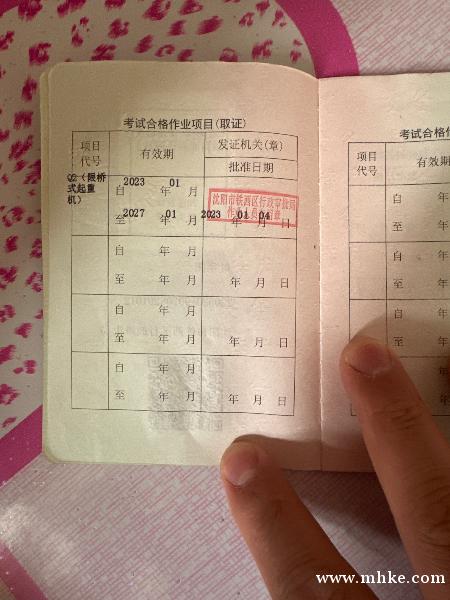 考试合格作业项目(取证)
项目代号
有效期
发证机关(章)
批准日期
Q2(限桥式起重机)
自 2023 年 01 月
至 2027 年 01 月
沈阳市铁西区行政审批局
2023 年 01 月 04 日
自 年 月
至 年 月
年 月 日
自 年 月
至 年 月
年 月 日
自 年 月
至 年 月
年 月 日
考试合格作
项目代号
有效期
自 年
至 年
自 年
至 年
自 年
年
www.mhke.com